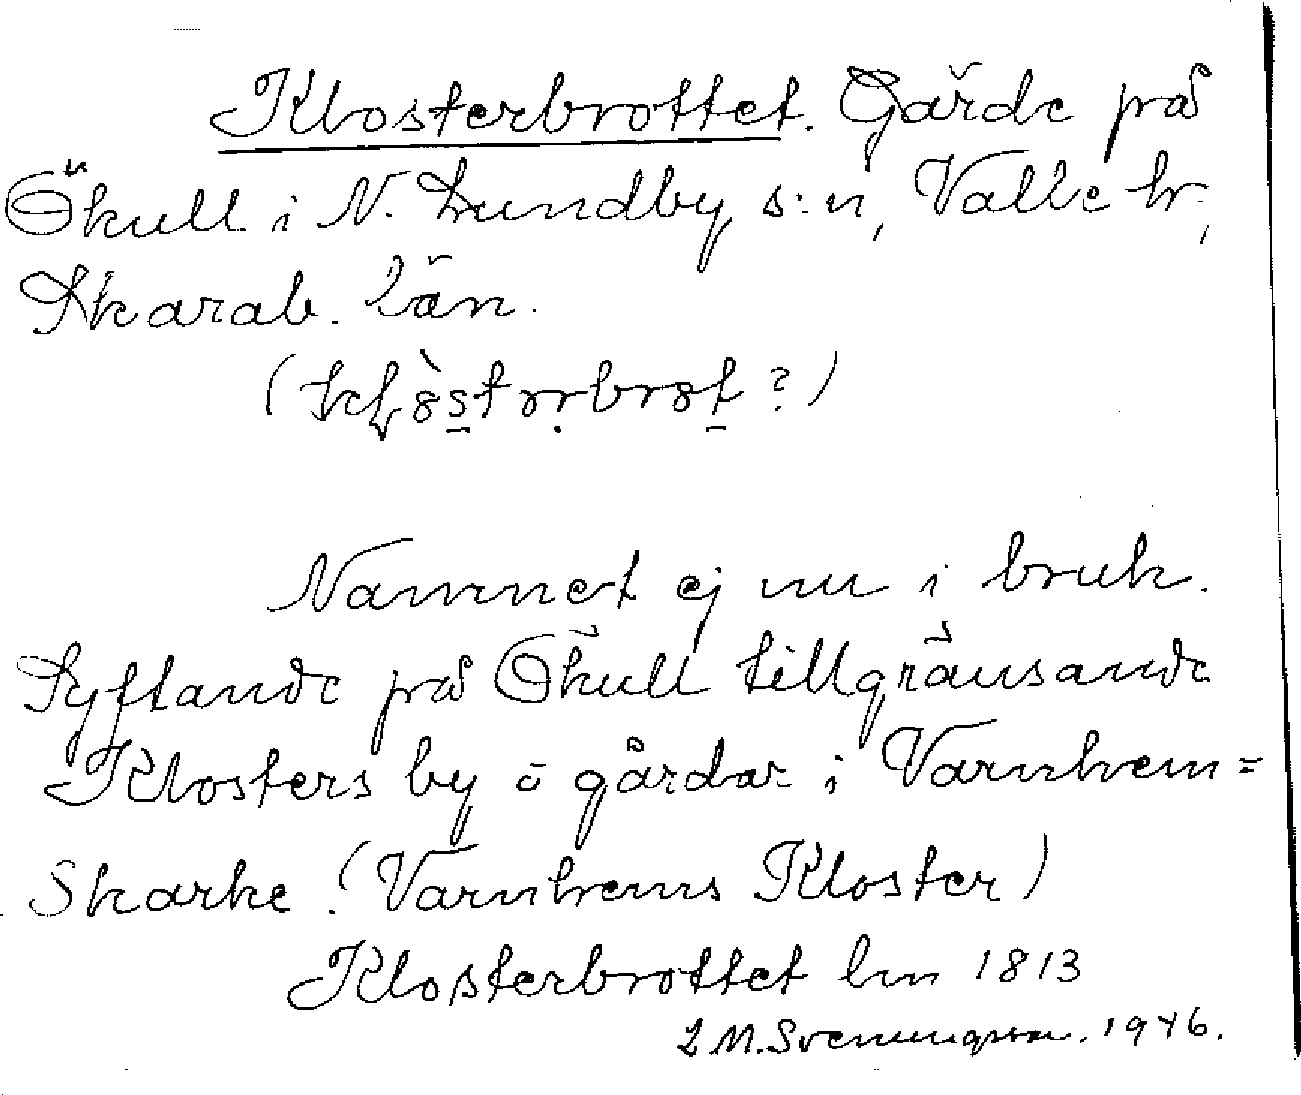 Klosterbrottet. Gärde på
Ökull i N. Lundby s:n, Valle hr,
Skarab. län.
(
?)
Namnet ej nu i bruk.
Syftande på Ökull tillgränsande
Klosters by o gårdar i Varnhem=
Skarke. (Varnhems Kloster)
Klosterbrottet lm 1813
L M. Svenungsson. 1946.